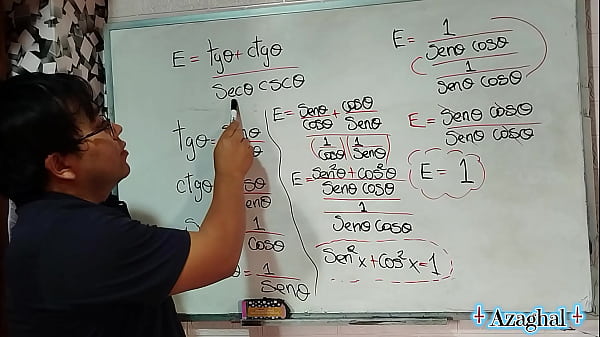 E = tgθ + ctgθ
Secθ cscθ
tgθ =
ctgθ
Cosθ
1
= 1
Senθ
E = Senθ + cosθ
Cosθ Senθ
(1/Cosθ)(1/Senθ)
E = Sen²θ + cos²θ
Senθ cosθ
1
Senθ cosθ
Sen²x + cos²x = 1
E = 1
Senθ cosθ
1
Senθ cosθ
E = Senθ cosθ
Senθ cosθ
E = 1
Azaghal